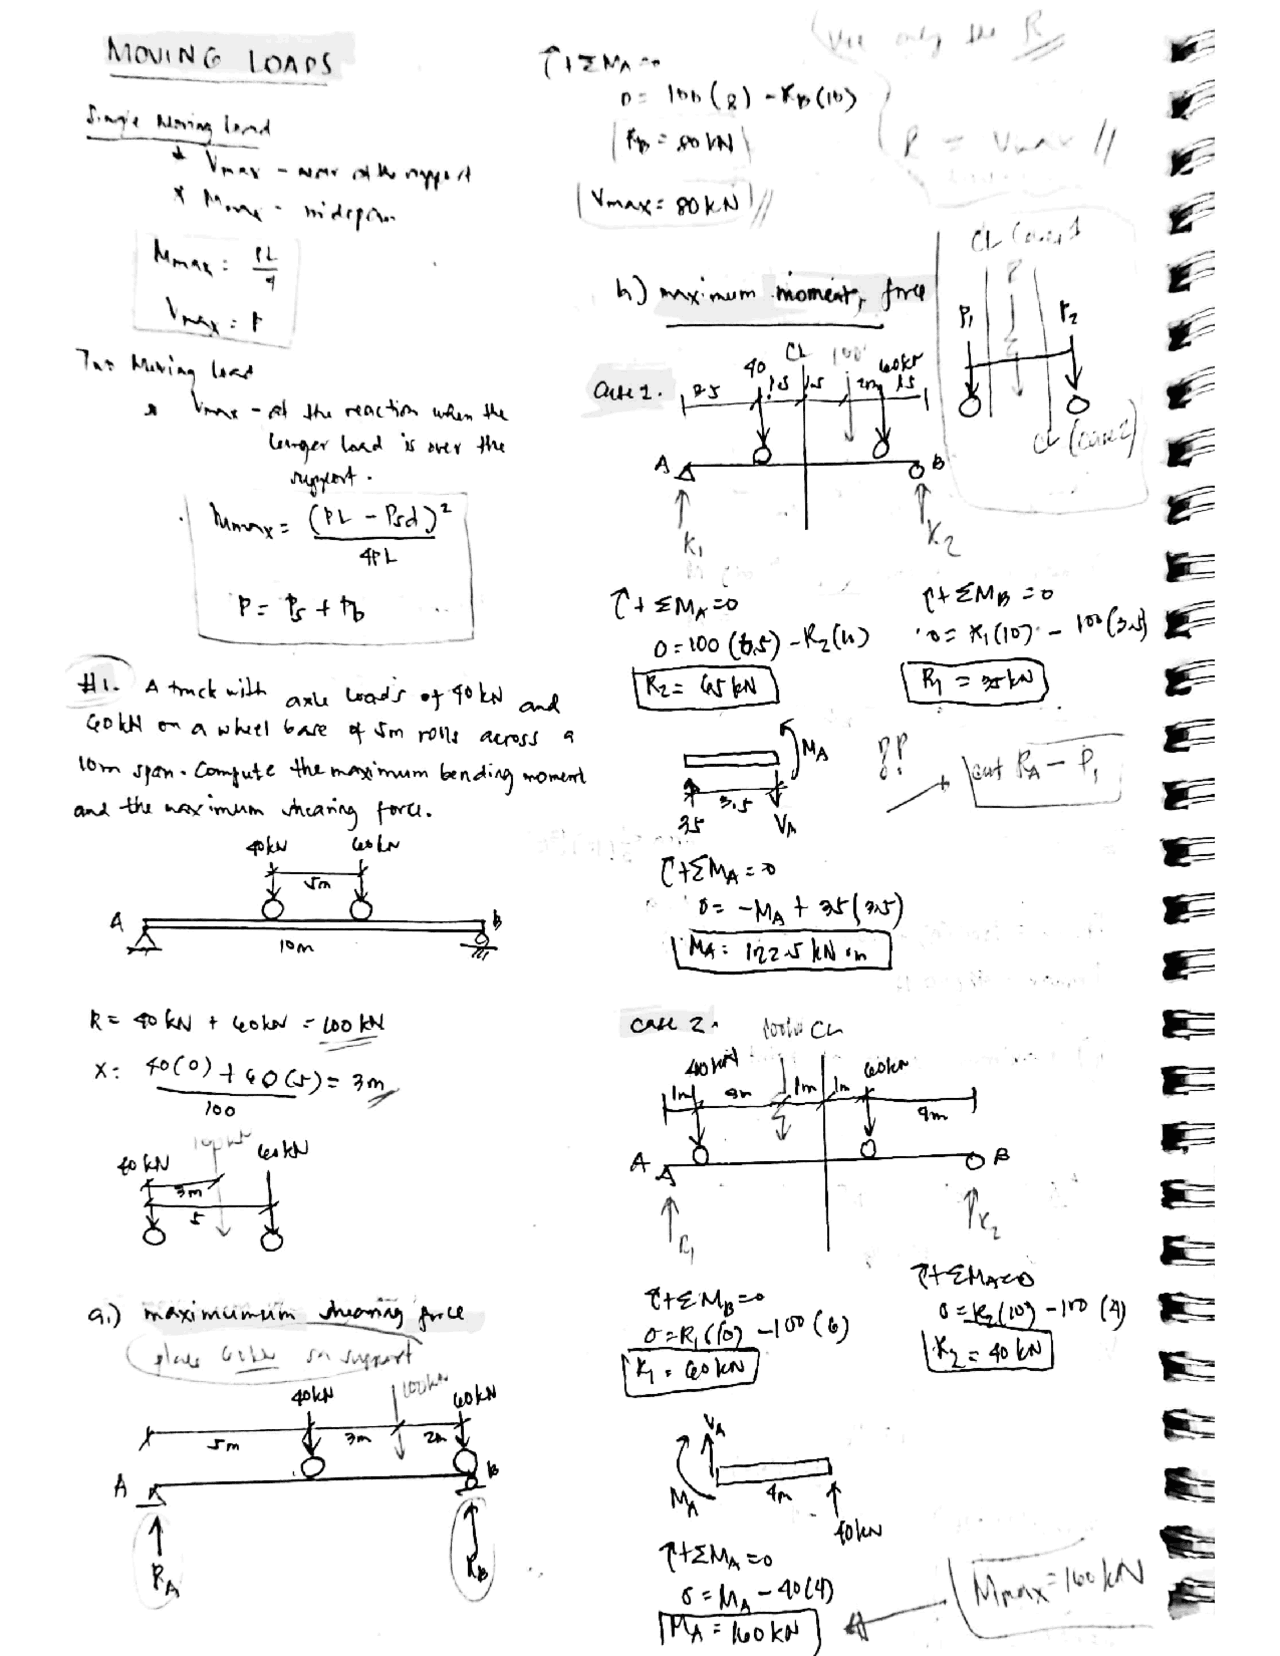 MOVING LOADS
Single Moving Load
* Vmax - near at the support
* Mmax - midspan
Mmax = PL/4
Vmax = P
Two Moving Load
* Vmax - at the reaction when the
larger load is over the
support.
Mmax = (PL - Psd)²/4PL
P = Ps + Pb
#1. A truck with axle loads of 40kN and
60kN on a wheel base of 5m rolls across a
10m span. Compute the maximum bending moment
and the maximum shearing force.
40kN 60kN
5m
A B
10m
R = 40kN + 60kN = 100kN
x = 40(0) + 60(5)/100 = 3m
40kN 100kN 60kN
3m
5
a.) maximumum shearing force
place 60kN on support
40kN 100kN 60kN
5m 3m 2m
A B
RA RB
↑+ΣMA=0
0 = 100(8) - RB(10)
RB = 80kN
Vmax = 80kN //
Use only the R
R = Vmax //
b) maximum moment, force
CL (case 1
P1 R P2
CL (case 2)
Case 1.
40 CL 100 60kN
2.5 1.5 1.5 2m 1.5
A B
R1 R2
↑+ΣMA=0
0=100(6.5) - R2(10)
R2 = 65kN
↑+ΣMB=0
0 = R1(10) - 100(3.5)
R1 = 35kN
MA
3.5
35 VA
??
cut RA - P1
↑+ΣMA=0
0 = -MA + 35(3.5)
MA = 122.5 kN.m
case 2.
40kN 100kN CL 60kN
1m 3m 1m 1m 4m
A B
R1 R2
↑+ΣMB=0
0=R1(10) - 100(6)
R1 = 60kN
↑+ΣMA=0
0=R2(10) - 100(4)
R2 = 40kN
VA
MA 4m
40kN
↑+ΣMA=0
0 = MA - 40(4)
MA = 160kN
Mmax = 160kN